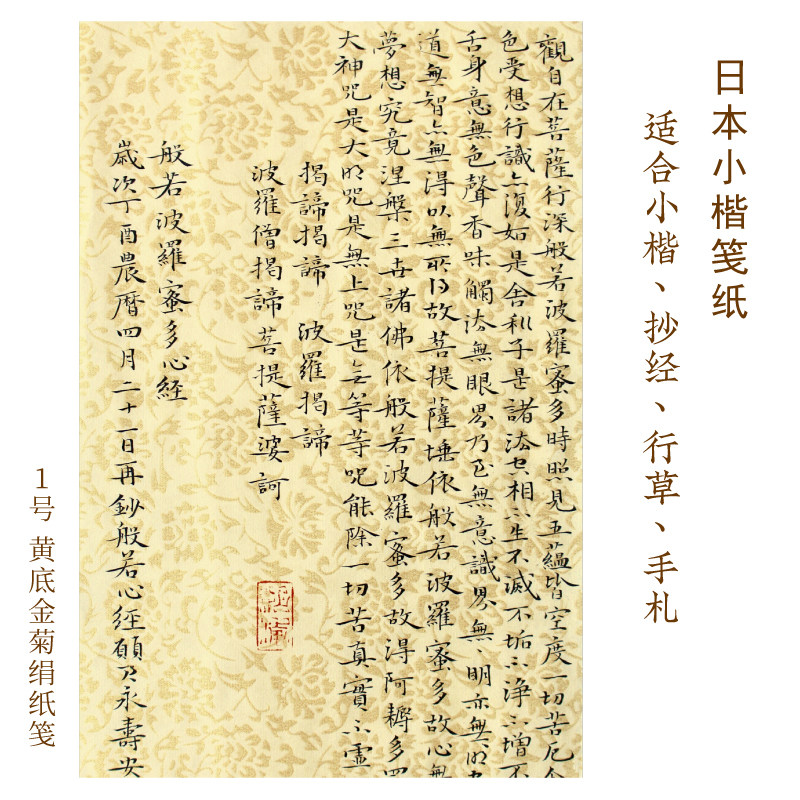 日本小楷笺纸
适合小楷、抄经、行草、手札
觀自在菩薩行深般若波羅蜜多時照見五蘊皆空度一切苦厄
色受想行識亦復如是舍利子是諸法空相不生不滅不垢不淨不增不
舌身意無色聲香味觸法無眼界乃至無意識界無、明亦無、
道無智亦無得以無所得故菩提薩埵依般若波羅蜜多故心無
夢想究竟涅槃三世諸佛依般若波羅蜜多故得阿耨多
大神咒是大明咒是無上咒是无等等咒能除一切苦真實不虛
揭諦揭諦 波羅揭諦
波羅僧揭諦 菩提薩婆訶
般若波羅蜜多心經
歲次丁酉農曆四月二十一日再鈔般若心經願永壽安
1号 黄底金菊绢纸笺